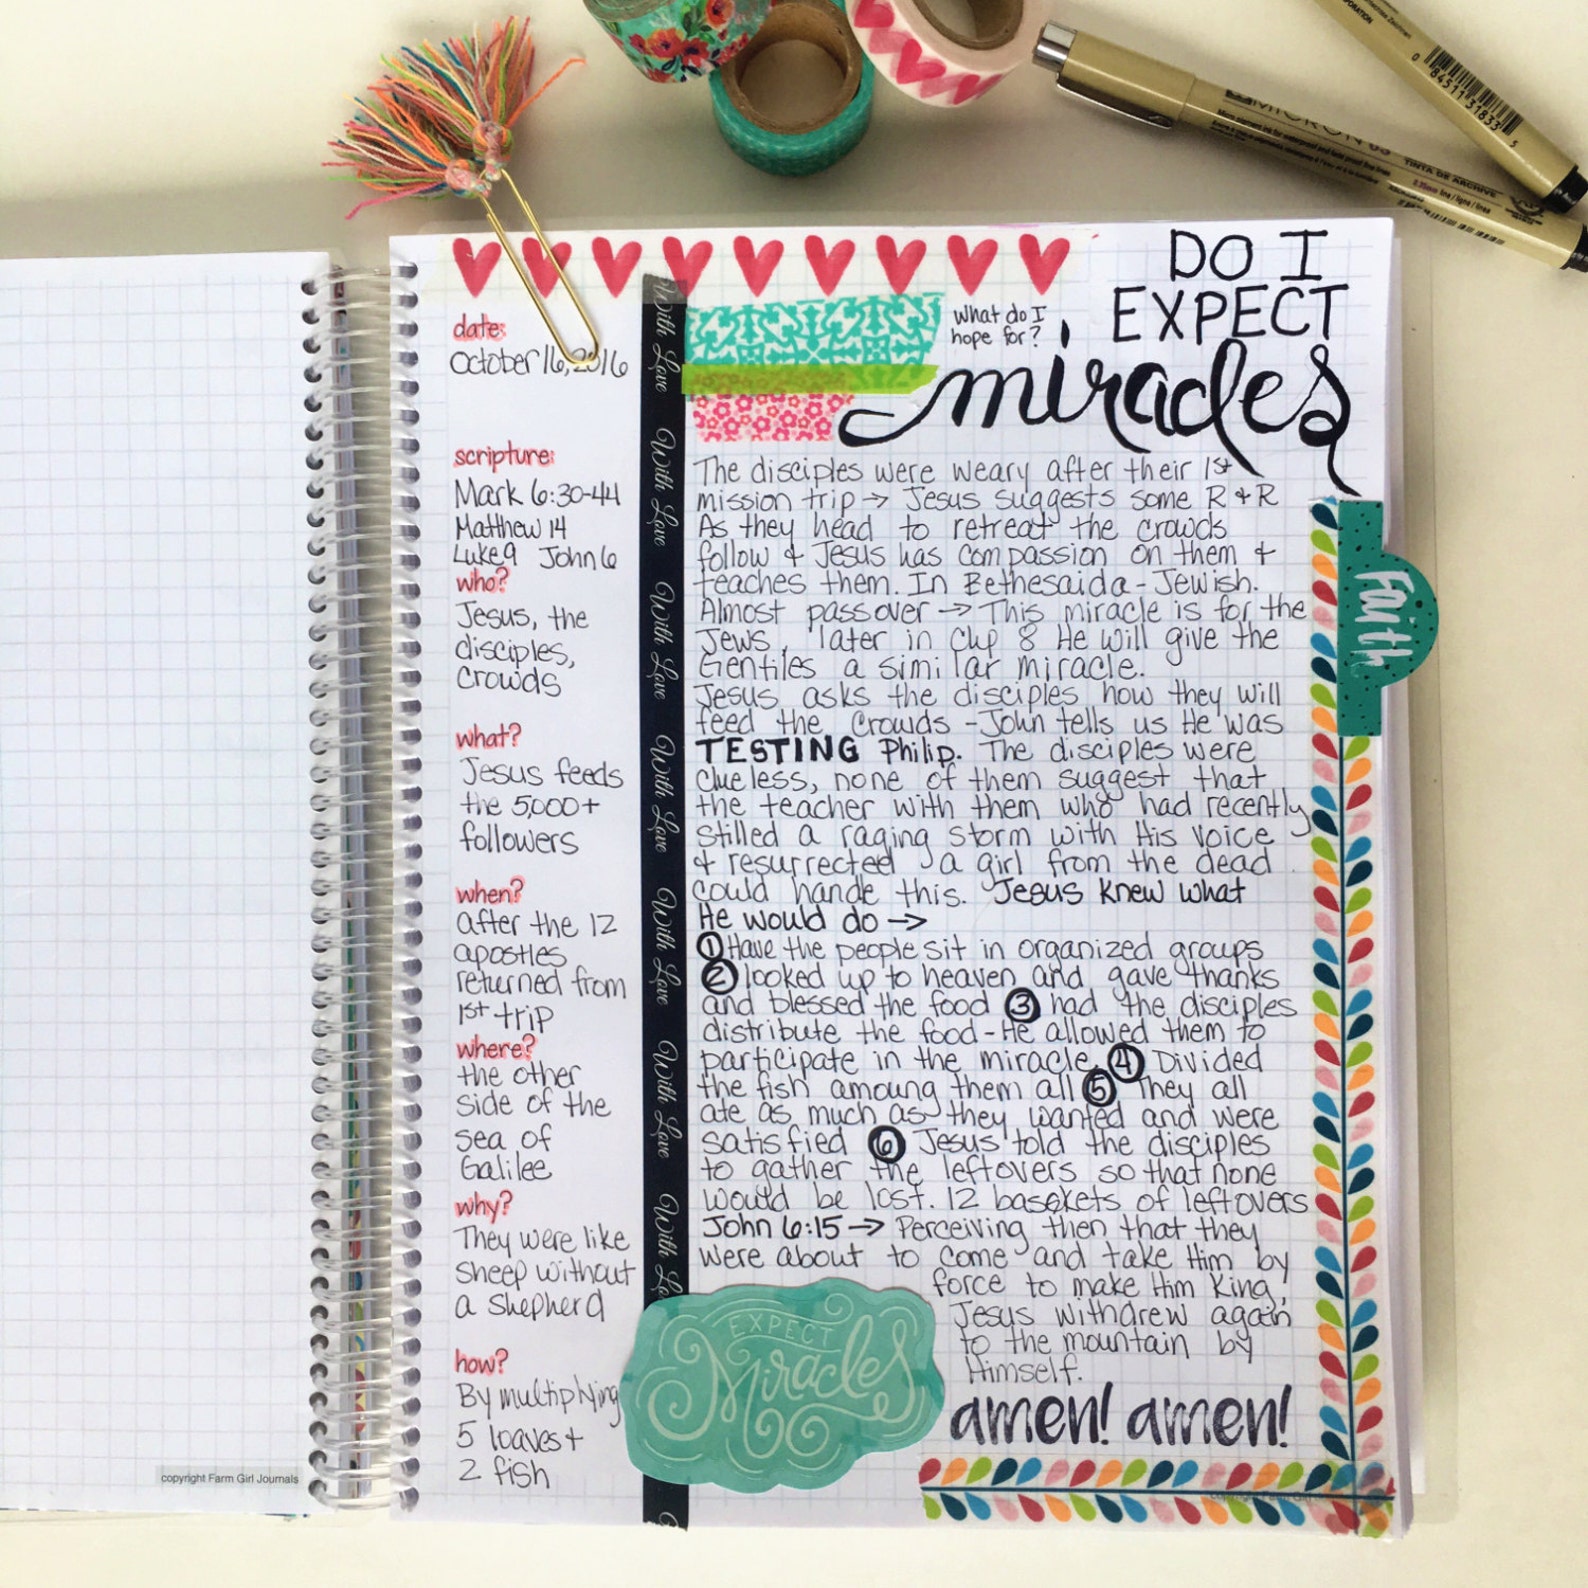 0 84511 31833 5
MICRON 05
TINTA DE ARCHIVE
DO I
EXPECT
miracles
What do I
hope for?
date:
October 16, 2016
scripture:
Mark 6:30-44
Matthew 14
Luke 9 John 6
who?
Jesus, the
disciples,
crowds
what?
Jesus feeds
the 5,000+
followers
when?
after the 12
apostles
returned from
1st trip
where?
the other
side of the
sea of
Galilee
why?
They were like
sheep without
a shepherd
how?
By multiplying
5 loaves +
2 fish
With Love
With Love
With Love
With Love
With Love
With Love
With Love
The disciples were weary after their 1st
mission trip → Jesus suggests some R & R
As they head to retreat the crowds
follow & Jesus has compassion on them &
teaches them. In Bethesaida - Jewish.
Almost passover → This miracle is for the
Jews, later in chp 8 He will give the
Gentiles a similar miracle.
Jesus asks the disciples how they will
feed the crowds - John tells us He was
TESTING Philip. The disciples were
clueless, none of them suggest that
the teacher with them who had recently
stilled a raging storm with His voice
& resurrected a girl from the dead
could hande this. Jesus knew what
He would do →
① Have the people sit in organized groups
② looked up to heaven and gave thanks
and blessed the food ③ had the disciples
distribute the food - He allowed them to
participate in the miracle. ④ Divided
the fish amoung them all ⑤ They all
ate as much as they wanted and were
satisfied ⑥ Jesus told the disciples
to gather the leftovers so that none
would be lost. 12 baskets of leftovers
John 6:15 → Perceiving then that they
were about to come and take Him by
force to make Him King,
Jesus withdrew again
to the mountain by
Himself.
amen! amen!
Faith
EXPECT
Miracles
copyright Farm Girl Journals